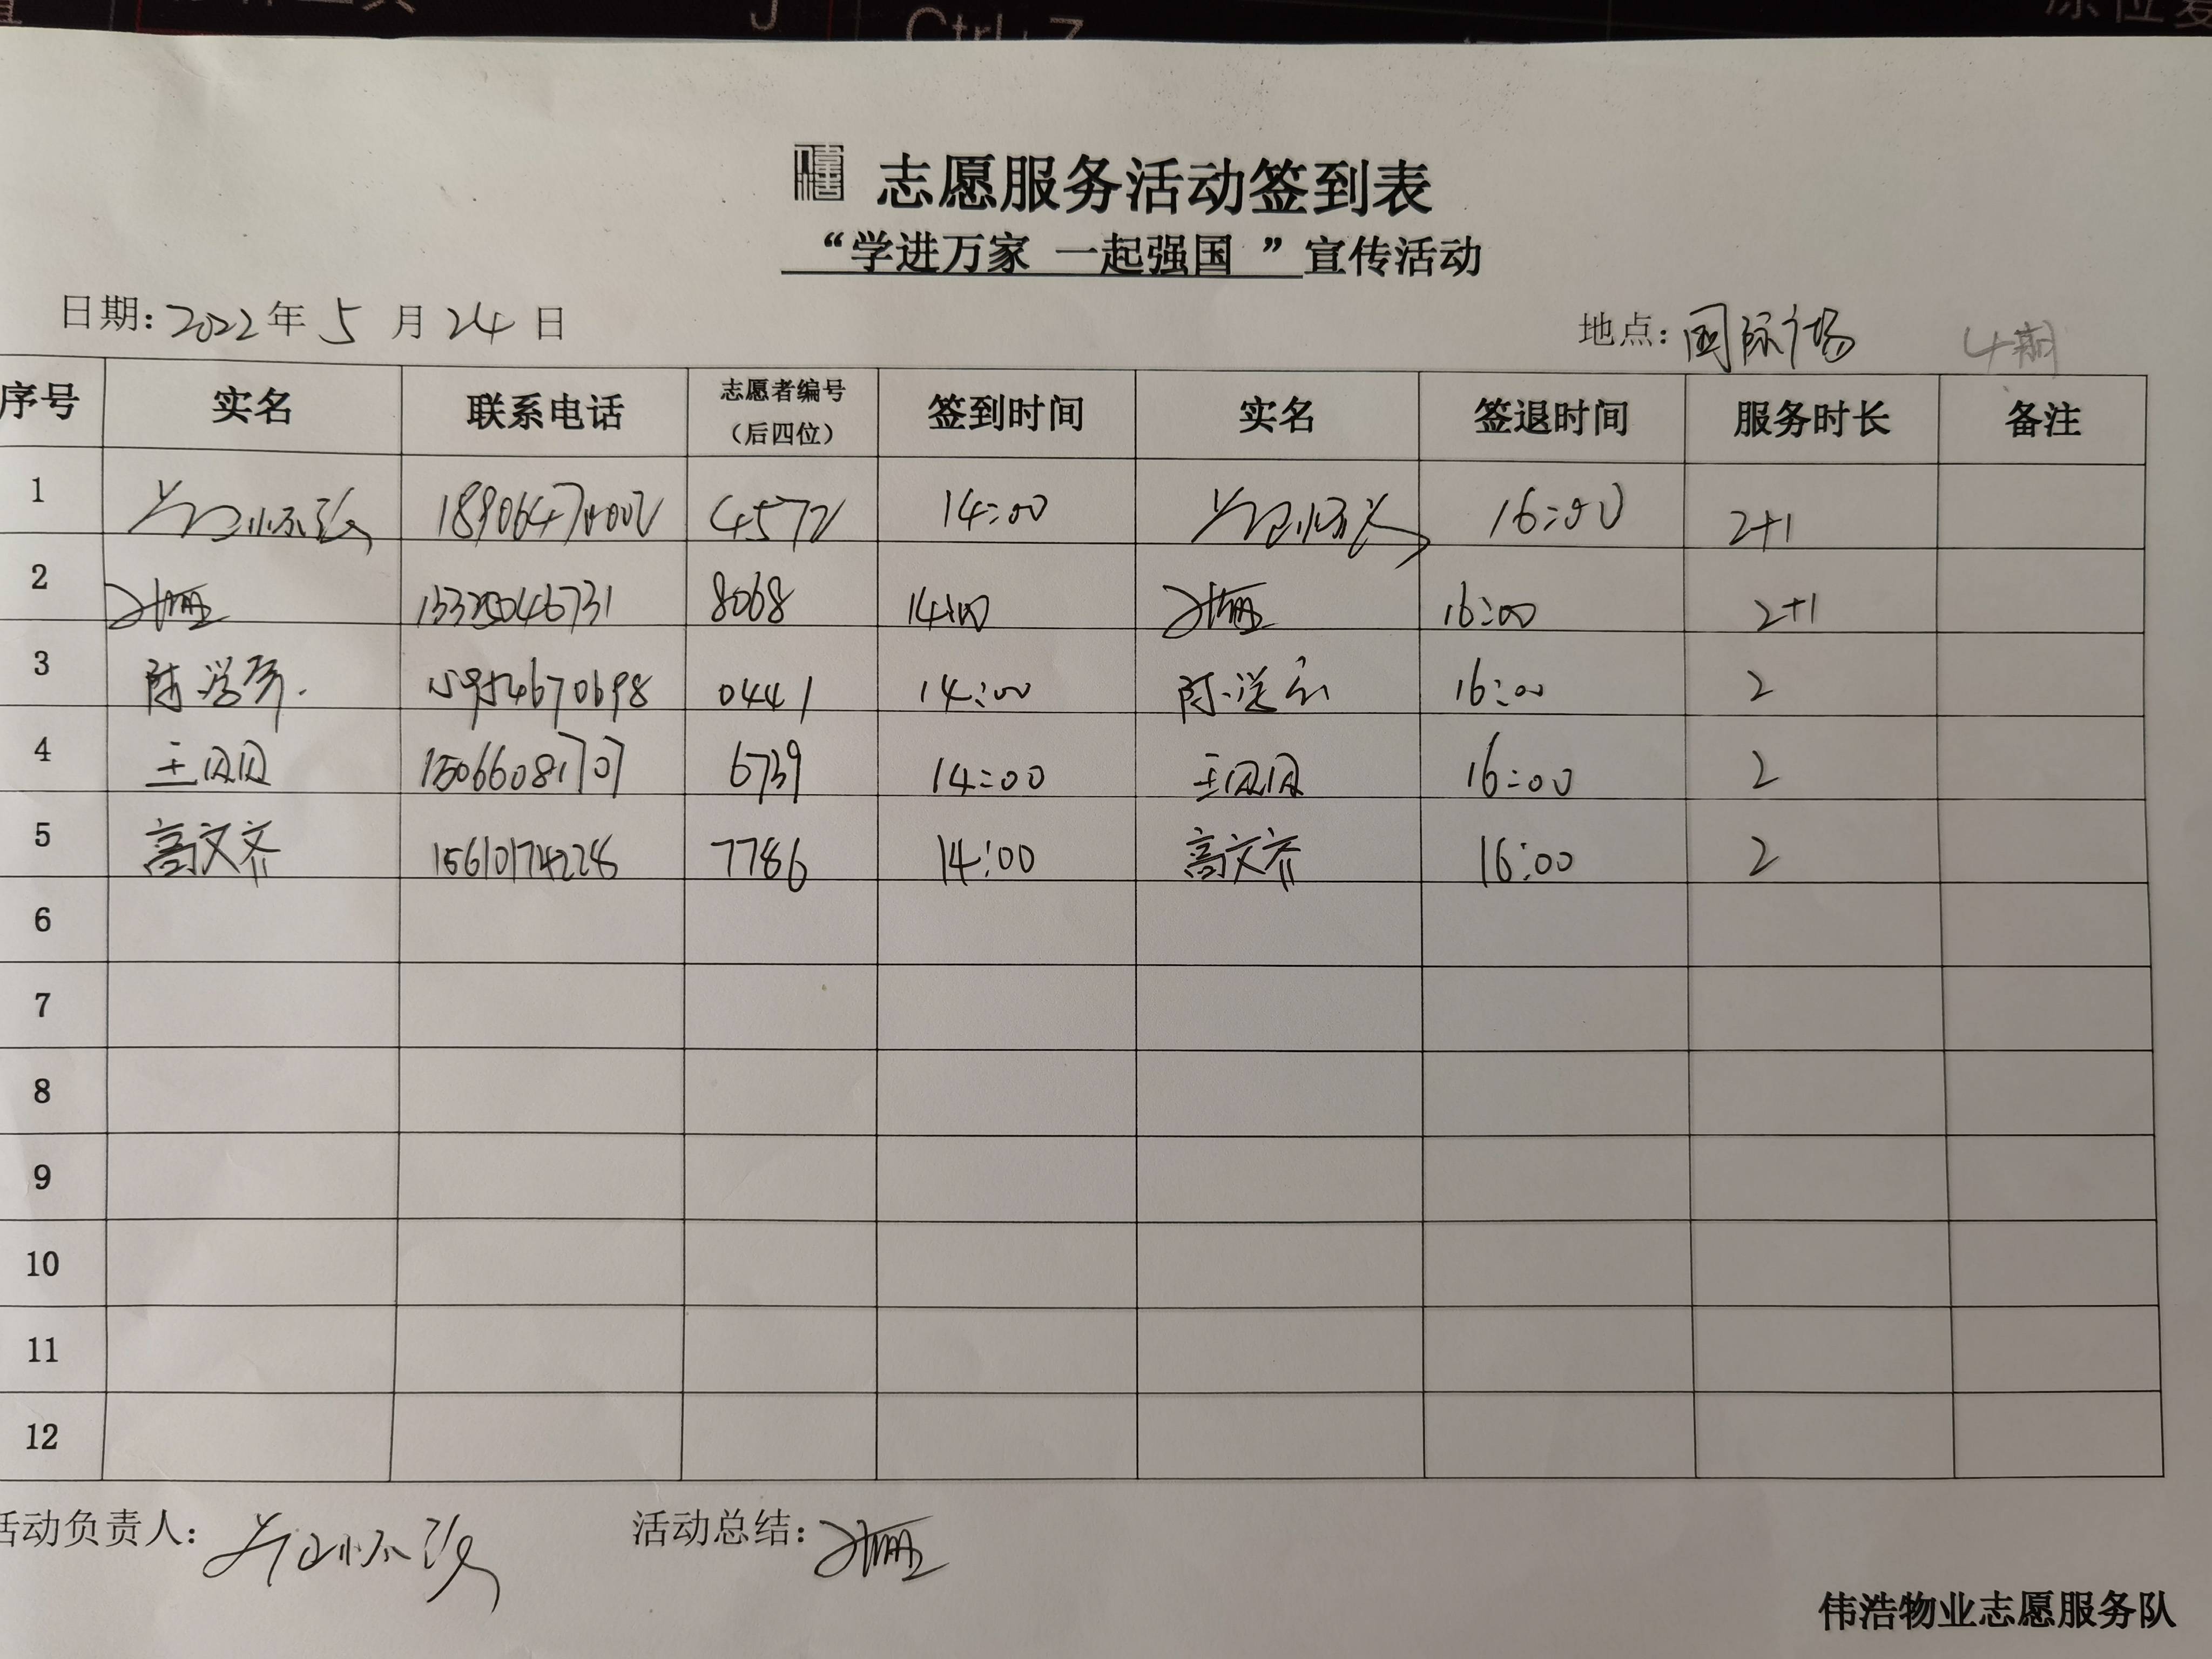 Ctrl+Z
志愿服务活动签到表
“学进万家 一起强国 ”宣传活动
日期: 2022 年 5 月 24 日 地点: 国际广场 4期
序号 实名 联系电话 志愿者编号（后四位） 签到时间 实名 签退时间 服务时长 备注
1 4572 14:00 16:00 2+1
2 8068 14:00 16:00 2+1
3 15954670698 0441 14:00 16:00 2
4 王贝贝 15066081707 6739 14:00 王贝贝 16:00 2
5 高文齐 15610174228 7786 14:00 高文齐 16:00 2
6
7
8
9
10
11
12
活动负责人: 活动总结:
伟浩物业志愿服务队